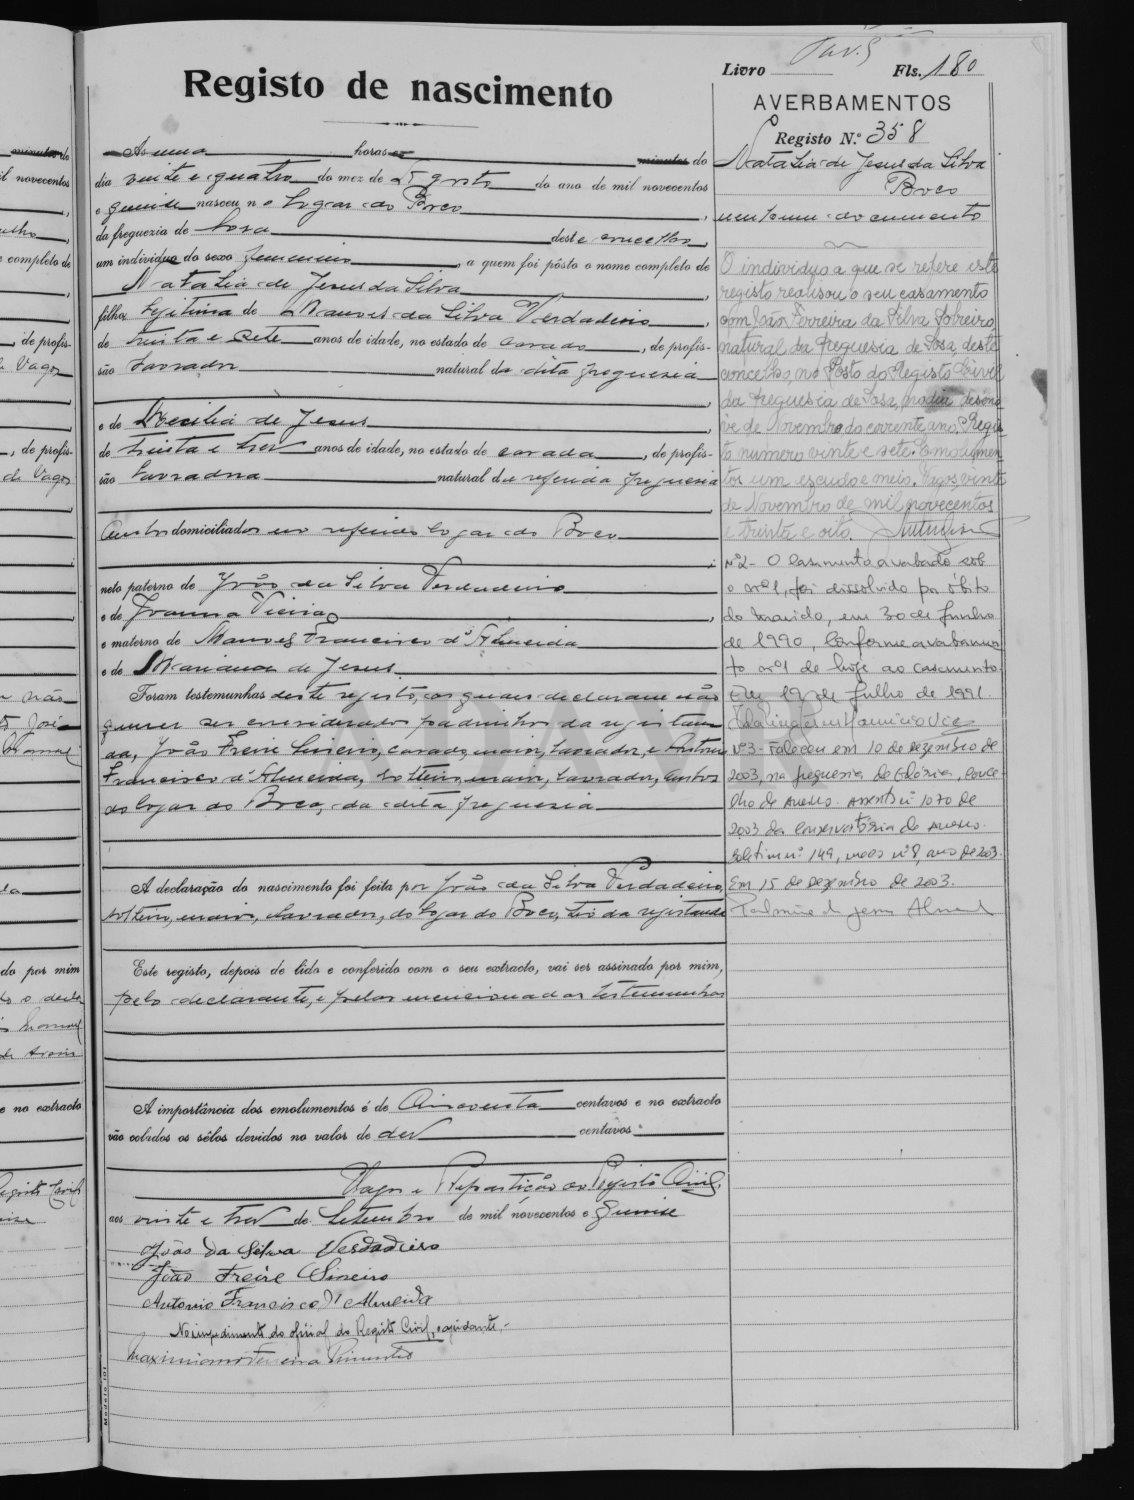 Livro Fls. 180
Registo de nascimento
AVERBAMENTOS
Registo N.º 358
Natalia de Jesus da Silva
Boco
um documento
As uma horas e minutos do
dia vinte e quatro do mez de Agosto do ano de mil novecentos
e quinse nasceu n o logar do Boco,
da freguezia de Sosa deste concelho,
um individuo do sexo femenino, a quem foi pôsto o nome completo de
Natalia de Jesus da Silva,
filha legitima de Manuel da Silva Verdadeiro,
de trinta e sete anos de idade, no estado de casado, de profis-
são lavrador natural da dita freguesia
e de Cecilia de Jesus
de trinta e tres anos de idade, no estado de casada, de profis-
são lavradora natural da referida freguesia
Ambos domiciliados no referido logar do Boco
neto paterno de João da Silva Verdadeiro
e de Joanna Vieira,
e materno de Manuel Francisco d'Almeida
e de Mariana de Jesus
Foram testemunhas deste registo, os quaes declararam não
querer ser considerados padrinhos da registan
da, João Freire Sineiro, casado, maior, lavrador, e Antonio
Francisco d'Almeida, solteiro, maior, lavrador, ambos
do logar do Boco, da dita freguesia
A declaração do nascimento foi feita por João da Silva Verdadeiro,
solteiro, maior, lavrador, do logar do Boco, tio da registanda
Este registo, depois de lido e conferido com o seu extracto, vai ser assinado por mim,
pelo declarante, e pelas mencionadas testemunhas
A importância dos emolumentos é de Cincoenta centavos e no extracto
vão colados os sêlos devidos no valor de dez centavos.
Vagos e Repartição do Registo Civil,
aos vinte e tres de Setembro de mil novecentos e quinse
João da Silva Verdadeiro
João Freire Sineiro
Antonio Francisco d'Almeida
No impedimento do oficial do Registo Civil, o ajudante,
Maximiano Ferreira Pimentel
Modelo 101
O individuo a que se refere este
registo realisou o seu casamento
com João Ferreira da Silva Sobreiro,
natural da freguesia de Sosa, deste
concelho, no Posto do Registo Civil
da freguesia de Sosa, no dia desono-
ve de Novembro do corrente ano. Regis-
to numero vinte e sete. Emolumen-
tos um escudo e meio. Vagos, vinte
de Novembro de mil novecentos
e trinta e oito.
Nº2 - O casamento averbado sob
o nº1, foi dissolvido por óbito
do marido, em 30 de Junho
de 1990, conforme averbamen-
to nº1 de hoje ao casamento.
Em 12 de Julho de 1991.
Nº3 - Faleceu em 10 de dezembro de
2003, na freguesia de Glória, conce-
lho de Aveiro. Assento nº 1070 de
2003 da Conservatória de Aveiro.
Boletim nº 149, maço nº 8, ano de 2003.
Em 15 de dezembro de 2003.